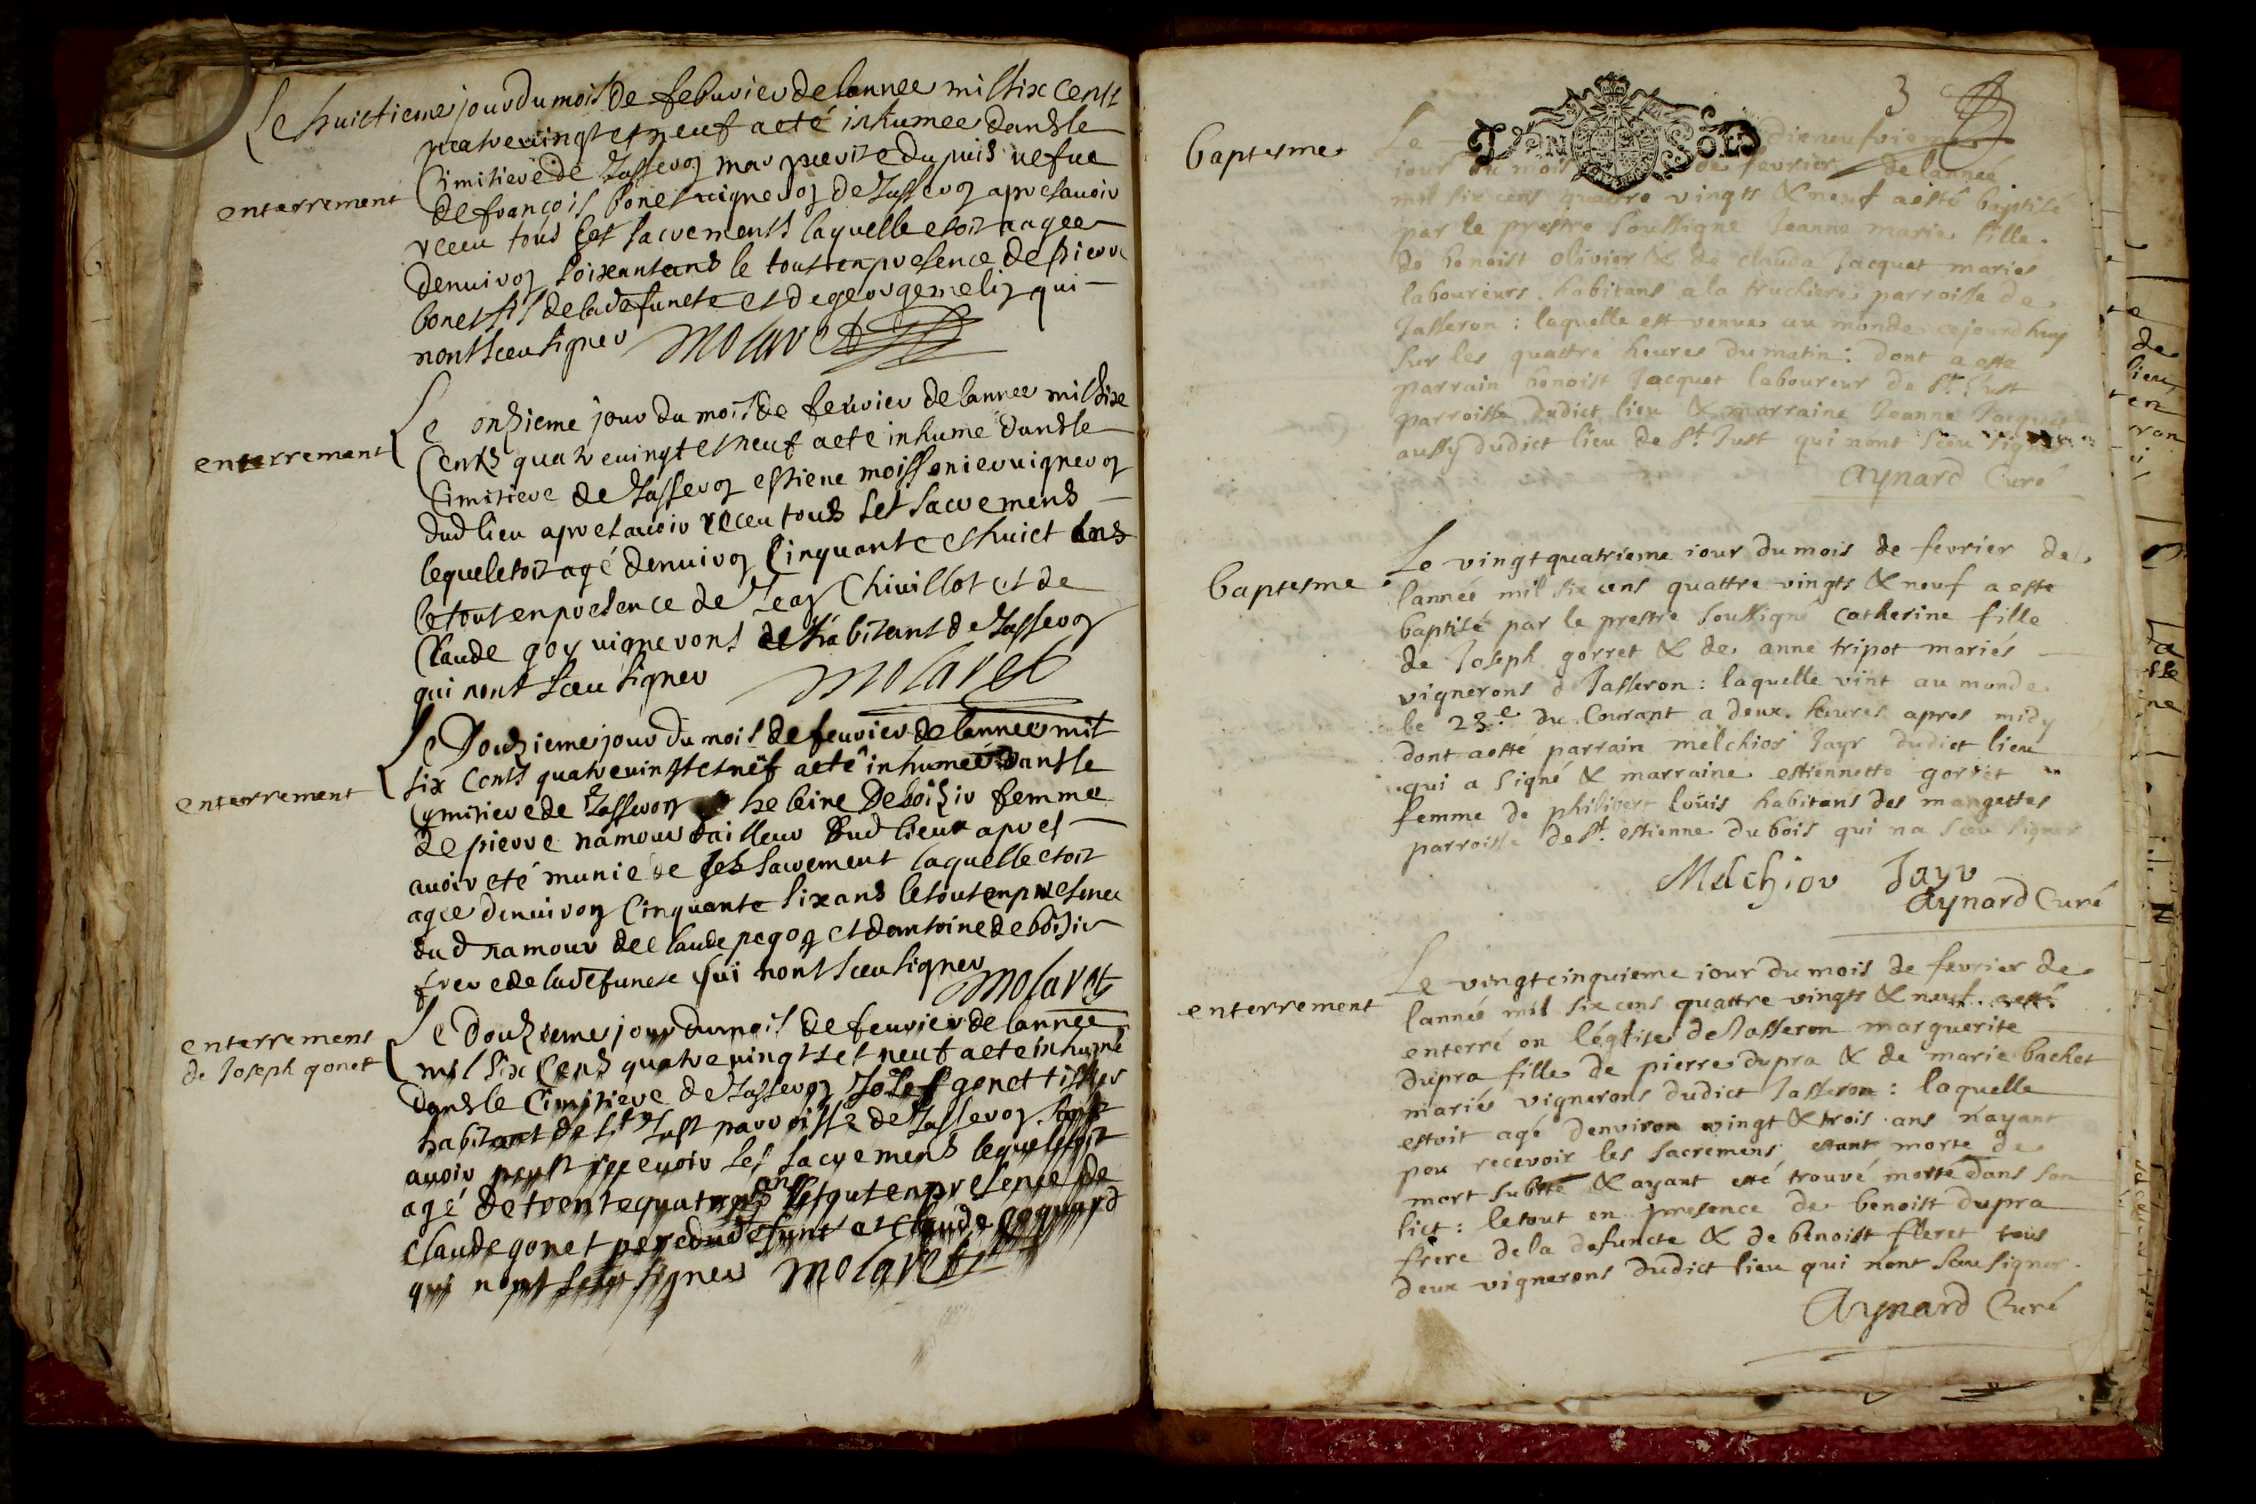 Le huictieme jour du mois de febuvier de lannee mil six cents
quatre vingt et neuf a eté inhumee dans le
Cimitiere de Jasseron marguerite dupuis vefue
enterrement
de francois bonet vigneron de Jasseron apres avoir
receu tous ses sacrements laquelle etoit aagee
denuiron soixante ans le tout en presence de pierre
bonet fils de la defuncte et de george melin qui
nont sceu signer Molaret
Le onzieme jour du mois de feuvier de lannee mil six
enterrement
Cents quatre vingt et neuf a ete inhume dans le
Cimitiere de Jasseron estiene moissonier vigneron
dud lieu apres avoir receu tous ses sacremens
lequel etoit agé denuiron Cinquante et huict ans
le tout en presence de Jean Chivillot et de
Claude goy vignerons et habitans de Jasseron
qui nont sceu signer Molaret
Le Douzieme jour du mois de feuvrier de lannee mil
six Cents quatre vingt et nëf a eté inhumée dans le
enterrement
Cymitiere de Jasseron helaine deboisir femme
de pierre namour tailleur dud lieu apres
avoir eté munie de ses sacrement laquelle etoit
agee denuiron Cinquante six ans le tout en presence
dud namour de Claude pegon et dantoine deboisir
frere de la defuncte qui nont sceu signer
Molaret
enterrement
de Joseph gonet
Le Douzieme jour du mois de feuvier de lannee
mil six Cens quatre vingts et neuf a ete inhumé
dans le Cimitiere de Jasseron Josef gonet
habitant de st Just parroisse de Jasseron
avoir peust recevoir ses sacremens lequel etoit
agé de trente quatre ans le tout en presence de
Claude gonet pere du defunt et Claude
qui nont sceu signer Molaret
3
DEN SOLS
baptesme
Le dieneufvieme
iour du mois de fevrier de lannée
mil six cens quattre vingts & neuf a esté baptisé
par le prestre soussigne Jeanne marie fille
de benoist olivier & de clauda Jacquet mariés
laboureurs habitans a la truchiere parroisse de
Jasseron : laquelle est venue au monde cejourdhuy
sur les quattre heures du matin : dont a esté
parrain benoist Jacquet laboureur de st. Just
parroisse dudict lieu & marraine Jeanne Jacquet
aussy dudict lieu de st. Just qui nont sceu signer
Aynard Curé
baptesme
Le vingtquatrieme iour du mois de fevrier de
lannée mil six cens quattre vingts & neuf a esté
baptisé par le prestre soussigné catherine fille
de Joseph gorret & de anne tripot mariés
vignerons de Jasseron : laquelle vint au monde
le 23e du Courant a deux heures apres midy
dont a esté parrain melchior Jayr dudict lieu
qui a signé & marraine estiennette gorret
femme de philibert louis habitans des mangettes
parroisse de st. estienne du bois qui na sceu signer
Melchior Jayr
Aynard Curé
enterrement
Le vingtcinquieme iour du mois de fevrier de
lannée mil six cens quattre vingts & neuf a esté
enterré en léglise de Jasseron marguerite
dupra fille de pierre dupra & de marie bachet
mariés vignerons dudict Jasseron : laquelle
estoit agé denviron vingt & trois ans nayant
peu recevoir les sacremens estant morte de
mort subite & ayant esté trouvé morte dans son
lict : le tout en presence de benoist dupra
frere de la defuncte & de benoist fleret tous
deux vignerons dudict lieu qui nont sceu signer
Aynard Curé